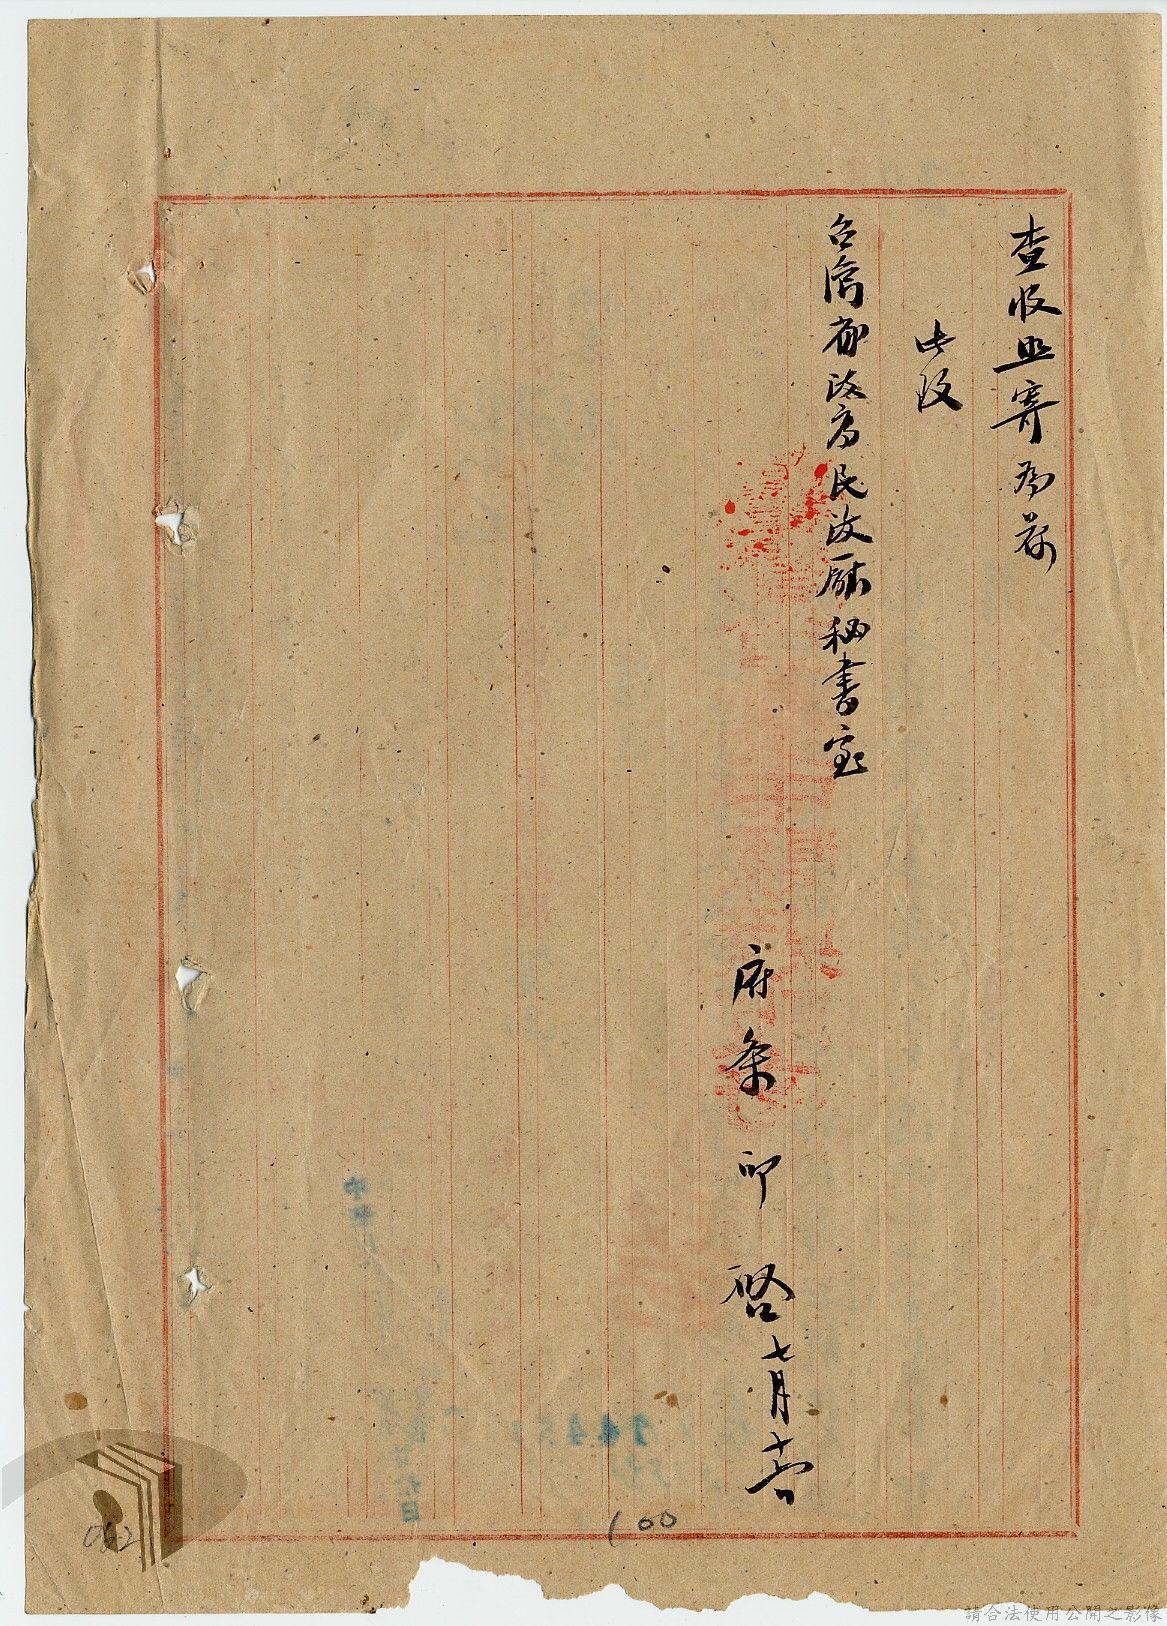 查收且寄為荷
此致
台灣省政府民政廳秘書室
府条印 啓 七月十六日
100
062
請合法使用公開之影像